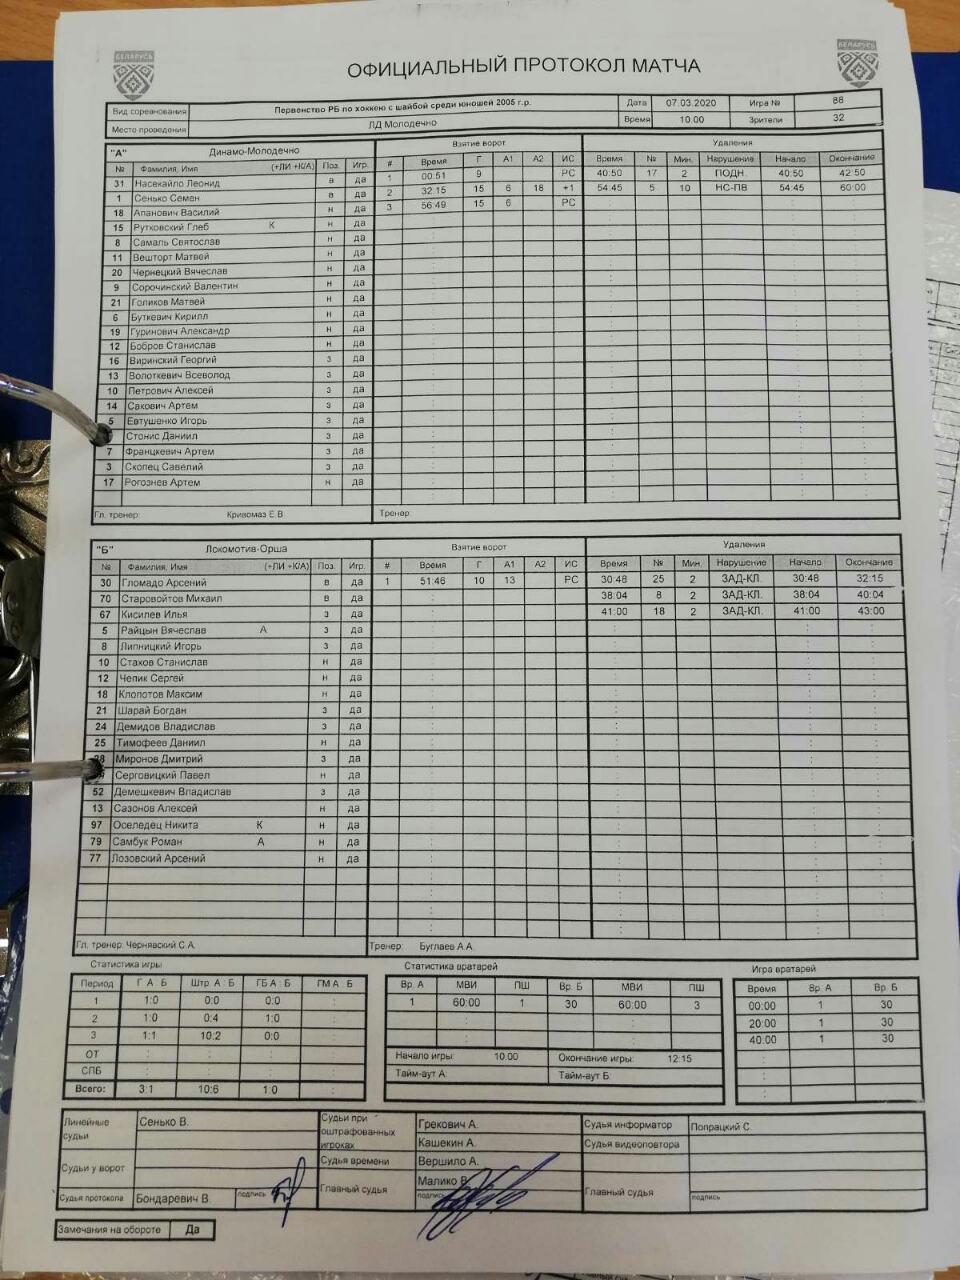 БЕЛАРУСЬ
БЕЛАРУСЬ
ОФИЦИАЛЬНЫЙ ПРОТОКОЛ МАТЧА
Вид соревнования Первенство РБ по хоккею с шайбой среди юношей 2005 г.р. Дата 07.03.2020 Игра № 88
Место проведения ЛД Молодечно Время 10.00 Зрители 32
"А" Динамо-Молодечно Взятие ворот Удаления
№ Фамилия, Имя (+ЛИ +К/А) Поз. Игр. # Время Г А1 А2 ИС Время № Мин. Нарушение Начало Окончание
31 Насекайло Леонид в да 1 00:51 9 РС 40:50 17 2 ПОДН. 40:50 42:50
1 Сенько Семен в да 2 32:15 15 6 18 +1 54:45 5 10 НС-ПВ 54:45 60:00
18 Апанович Василий н да 3 56:49 15 6 РС
15 Рутковский Глеб К н да
8 Самаль Святослав н да
11 Вешторт Матвей н да
20 Чернецкий Вячеслав н да
9 Сорочинский Валентин н да
21 Голиков Матвей н да
6 Буткевич Кирилл н да
19 Гуринович Александр н да
12 Бобров Станислав н да
16 Виринский Георгий з да
13 Волоткевич Всеволод з да
10 Петрович Алексей з да
14 Сакович Артем з да
5 Евтушенко Игорь з да
Стонис Даниил з да
7 Францкевич Артем з да
3 Скопец Савелий з да
17 Рогознев Артем н да
Гл. тренер: Кривомаз Е.В. Тренер:
"Б" Локомотив-Орша Взятие ворот Удаления
№ Фамилия, Имя (+ЛИ +К/А) Поз. Игр. # Время Г А1 А2 ИС Время № Мин. Нарушение Начало Окончание
30 Гломадо Арсений в да 1 51:46 10 13 РС 30:48 25 2 ЗАД-КЛ. 30:48 32:15
70 Старовойтов Михаил в да 38:04 8 2 ЗАД-КЛ. 38:04 40:04
67 Кисилев Илья з да 41:00 18 2 ЗАД-КЛ. 41:00 43:00
5 Райцын Вячеслав А з да
8 Липницкий Игорь з да
10 Стахов Станислав н да
12 Чепик Сергей н да
18 Клопотов Максим н да
21 Шарай Богдан з да
24 Демидов Владислав з да
25 Тимофеев Даниил н да
Миронов Дмитрий з да
Серговицкий Павел н да
52 Демешкевич Владислав з да
13 Сазонов Алексей н да
97 Оселедец Никита К н да
79 Самбук Роман А н да
77 Лозовский Арсений н да
Гл. тренер: Чернявский С.А. Тренер: Буглаев А.А.
Статистика игры Статистика вратарей Игра вратарей
Период Г А Б Штр А Б ГБ А Б ГМ А Б Вр. А МВИ ПШ Вр. Б МВИ ПШ Время Вр. А Вр. Б
1 1:0 0:0 0:0 1 60:00 1 30 60:00 3 00:00 1 30
2 1:0 0:4 1:0 20:00 1 30
3 1:1 10:2 0:0 40:00 1 30
ОТ Начало игры: 10.00 Окончание игры: 12:15
СПБ Тайм-аут А: Тайм-аут Б:
Всего: 3:1 10:6 1:0
Линейные судьи Сенько В. Судьи при оштрафованных игроках Грекович А. Судья информатор Попрацкий С.
Кашекин А. Судья видеоповтора
Судьи у ворот Судья времени Вершило А.
Главный судья Малико В. Главный судья
Судья протокола Бондаревич В. подпись подпись подпись
Замечания на обороте Да